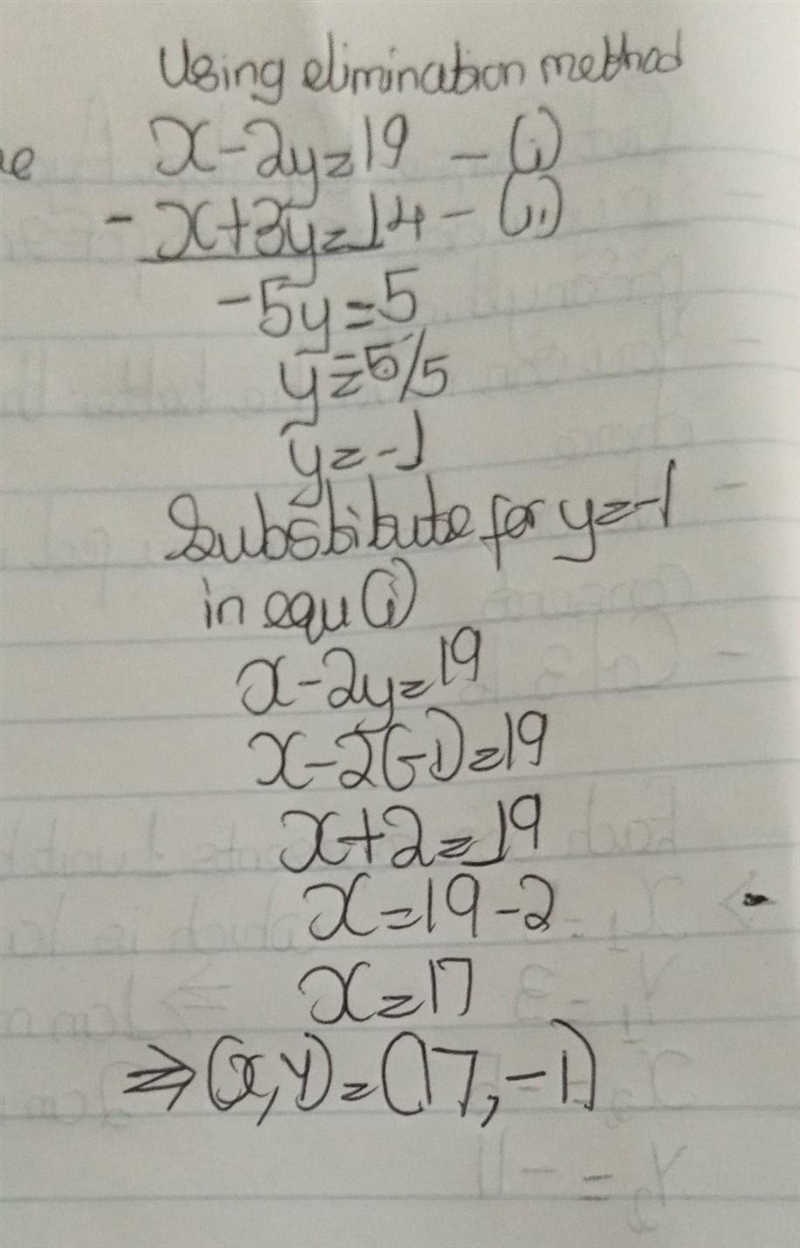 Using elimination method
x-2y=19 - (i)
- x+3y=14 - (ii)
-5y=5
y=5/5
y=-1
Substitute for y=-1
in equ (i)
x-2y=19
x-2(-1)=19
x+2=19
x=19-2
x=17
⇒(x,y)=(17,-1)